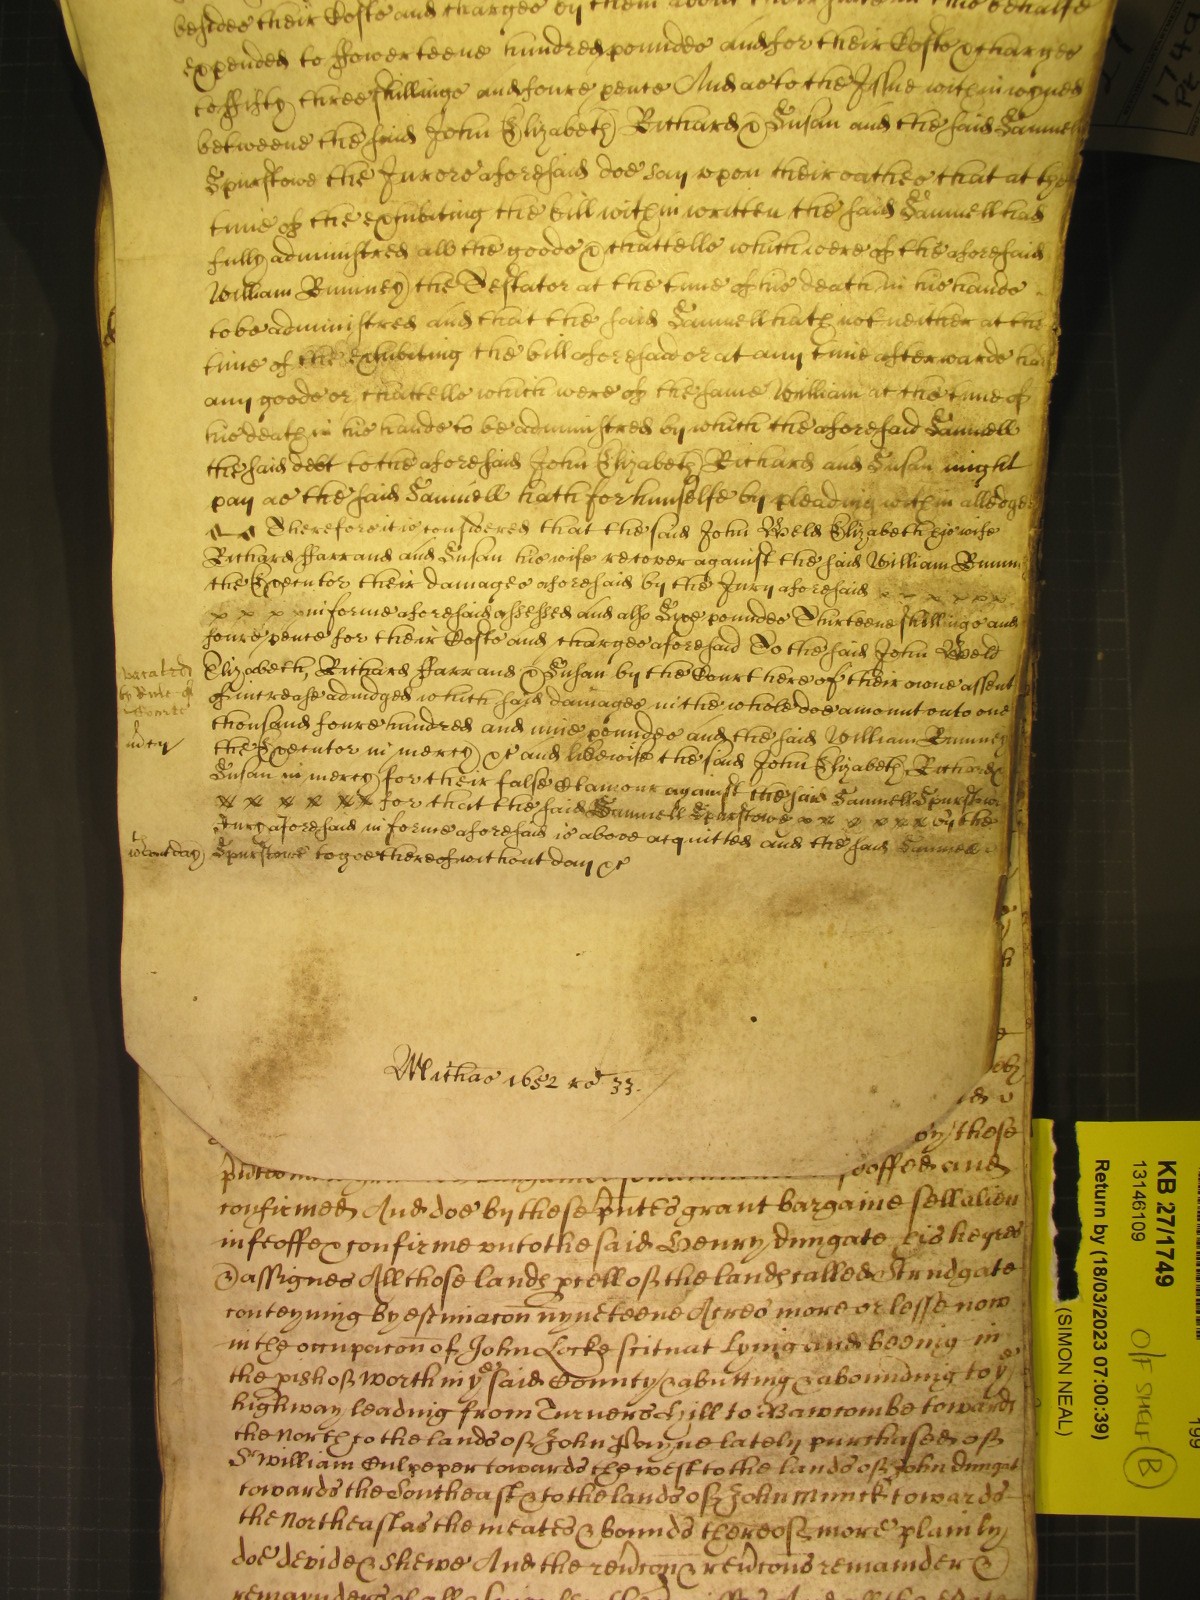 besides their Costs and charges by them about their suite in this behalfe
expended to ffowerteene hundred pounds and for their Costs & charges
to ffifty three shillings and foure pence And as to the Issue within ioyned
betweene the said John Elizabeth Richard & Susan and the said Samuell
Spurstowe the Jurors aforesaid doe say upon their oathes that at the
time of the exhibiting the bill within written the said Samuell had
fully administred all the goods & chattells which were of the aforesaid
William Rumney the Testator at the time of his death in his hands
to be administred and that the said Samuell hath not neither at the
time of the exhibiting the bill aforesaid or at any time afterwards had
any goods or chattells which were of the same William at the time of
his death in his hands to be administred by which the aforesaid Samuell
the said debt to the aforesaid John Elizabeth Richard and Susan might
pay as the said Samuell hath for himselfe by pleading within alledged
Therefore it is considered that the said John Weld Elizabeth his wife
Richard ffarrand and Susan his wife recover against the said William Rumney
the Executor their damages aforesaid by the Jury aforesaid
in forme aforesaid assessed and also Six pounds Thirteene shillings and
foure pence for their Costs and charges aforesaid To the said John Weld
Elizabeth, Richard ffarrand & Susan by the Court here of their owne assent
of increase adiudged which said damages in the whole doe amount unto one
thousand foure hundred and nine pounds and the said William Rumney
the Executor in mercy &c and likewise the said John Elizabeth Richard &
Susan in mercy for their false Clamour against the said Samuell Spurstowe
for that the said Samuell Spurstowe by the
Jury aforesaid in forme aforesaid is above acquitted and the said Samuell
Spurstowe to goe thereof without day &c
vacated
by Rule of
Court
mercy
without day
Michas 1652 ro 33.
by these
ooffed and
confirmed And doe by these pntes grant bargaine sell alien
infeoffe & confirme unto the said Henry dungate his heyres
& assignes All those lands pcell of the lands called Strudgate
conteyning by estimacon nyneteene Acres more or lesse now
in the occupacon of John Locke scituat lying and beeing in
the pish of Worth in ye said County & abutting & abounding to ye
highway leading from Turners Hill to Bawcombe towards
the North to the lands of John Payne lately purchased of
Sr William Culpeper towards the west to the lands of John dungat
towards the Southeast & to the lands of John towards
the Northeast as the meates & bounds thereof more plainly
doe devide & shewe And the revcon & revcons remainder &
KB 27/1749
13146109
Return by (18/03/2023 07:00:39)
(SIMON NEAL)
O/F SHELF
B
1749